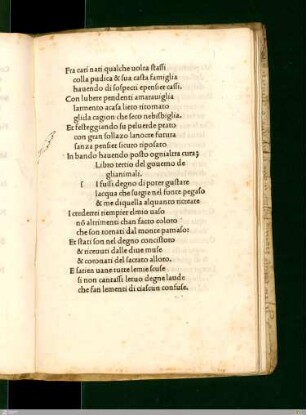 Fra cari nati qualche uolta stassi
colla pudica & sua casta famiglia
hauendo di sospecti epensier cassi.
Con lubere pendenti amarauiglia
larmento acasa lieto ritornato
glida cagion che seco nebisbiglia.
Et festeggiando su peluerde prato
con gran sollazo lanocte futura
sanza pensier sicuro riposato
In bando hauendo posto ognialtra cura;
Libro tertio del gouerno de
glianimali.
S I fussi degno di poter gustare
lacqua che surgie nel fonte pegaso
& me diquella alquanto ricreare
I crederrei riempier elmio uaso
nō altrimenti chan facto coloro
che son tornati dal monte parnaso:
Et stati son nel degno concistoro
& riceuuti dalle diue muse
& coronati del sacrato alloro.
E sarien uane tutte lemie scuse
si non cantassi letuo degne laude
che san lementi di ciascun confuse.